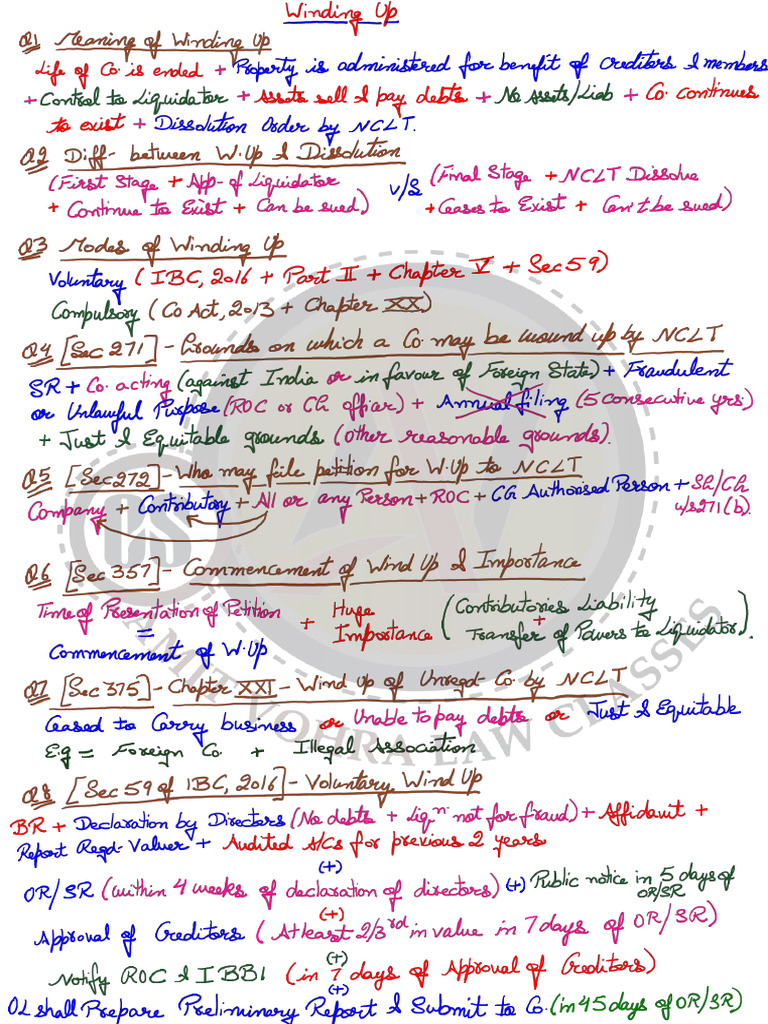 Winding Up
Q1 Meaning of Winding Up
Life of Co. is ended + Property is administered for benefit of creditors & members
+ Control to Liquidator + Assets sell & pay debts + No Assets/Liab + Co. continues
to exist + Dissolution Order by NCLT.
Q2 Diff- between W.Up & Dissolution
(First Stage + App- of Liquidator v/s (Final Stage + NCLT Dissolve
+ Continue to Exist + Can be sued) + Ceases to Exist + Can't be sued)
Q3 Modes of Winding Up
Voluntary (IBC, 2016 + Part II + Chapter V + Sec 59)
Compulsory (Co Act, 2013 + Chapter XX)
Q4 [Sec 271] - Grounds on which a Co. may be wound up by NCLT
SR + Co. acting (against India or in favour of Foreign State) + Fraudulent
or Unlawful Purpose (ROC or CG officer) + Annual filing (5 consecutive yrs)
+ Just & Equitable grounds (other reasonable grounds).
Q5 [Sec 272] - Who may file petition for W.Up to NCLT
Company + Contributory + All or any Person + ROC + CG Authorised Person + SG/CG
u/s 271(b).
Q6 [Sec 357] - Commencement of Wind Up & Importance
Time of Presentation of Petition + Huge (Contributories Liability
= Importance +
Commencement of W.Up Transfer of Powers to Liquidator).
Q7 [Sec 375] - Chapter XXI - Wind up of Unregd- Co. by NCLT
Ceased to Carry business or Unable to pay debts or Just & Equitable
E.g = Foreign Co. + Illegal Association
Q8 [Sec 59 of IBC, 2016] - Voluntary Wind Up
BR + Declaration by Directors (No debts + Liqn not for fraud) + Affidavit +
Report Regd- Valuer + Audited A/Cs for previous 2 years
(+)
OR/SR (within 4 weeks of declaration of directors) (+) Public notice in 5 days of
OR/SR
(+)
Approval of Creditors (Atleast 2/3rd in value in 7 days of OR/SR)
(+)
Notify ROC & IBBI (in 7 days of Approval of Creditors)
(+)
OL shall Prepare Preliminary Report & Submit to Co. (in 45 days of OR/SR)
AMIT VOHRA LAW CLASSES